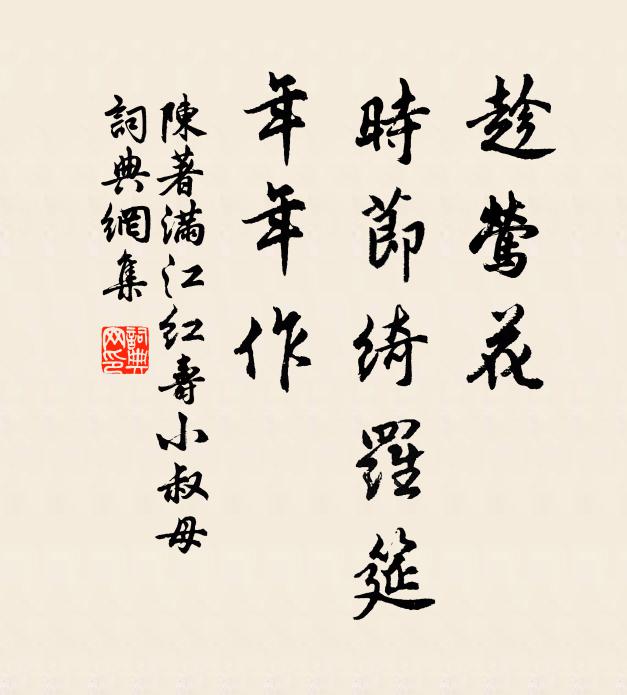 趁鶯花
時節綺羅筵
年年作
陳著滿江紅壽小叔母
詞典網集
詞典网印